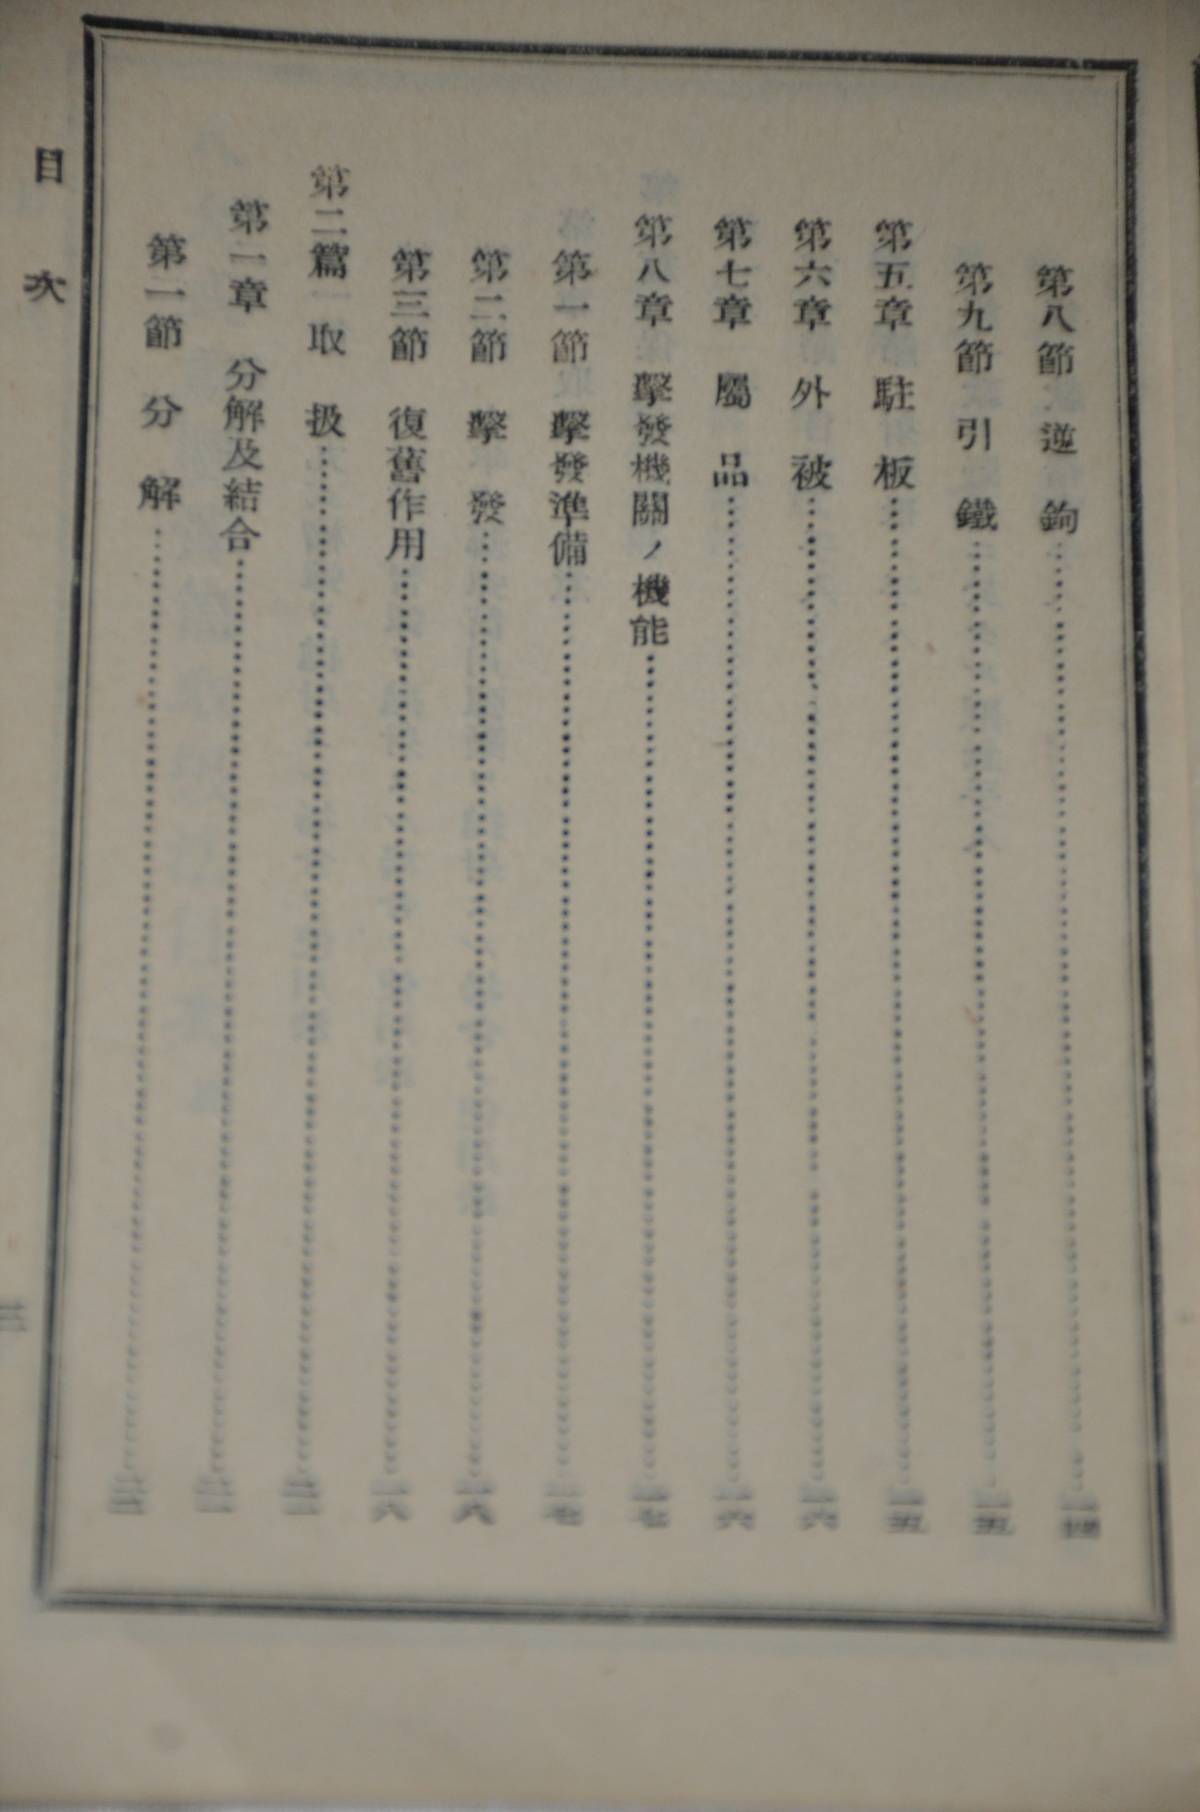 第八節 逆鉤………一四
第九節 引鐵………一五
第五章 駐板………一五
第六章 外被………一六
第七章 屬品………一六
第八章 擊發機關ノ機能………一七
第一節 擊發準備………一七
第二節 擊發………一八
第三節 復舊作用………一八
第二篇 取扱………
第一章 分解及結合………
第一節 分解………
目次